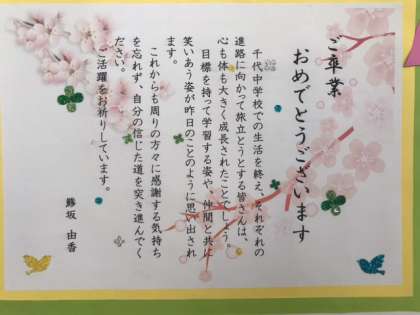 ご卒業
おめでとうございます
千代中学校での生活を終え、それぞれの
進路に向かって旅立とうとする皆さんは、
心も体も大きく成長されたことでしょう。
目標を持って学習する姿や、仲間と共に
笑いあう姿が昨日のことのように思い出され
ます。
これからも周りの方々に感謝する気持ち
を忘れず、自分の信じた道を突き進んでく
ださい。
ご活躍をお祈りしています。
鯵坂 由香